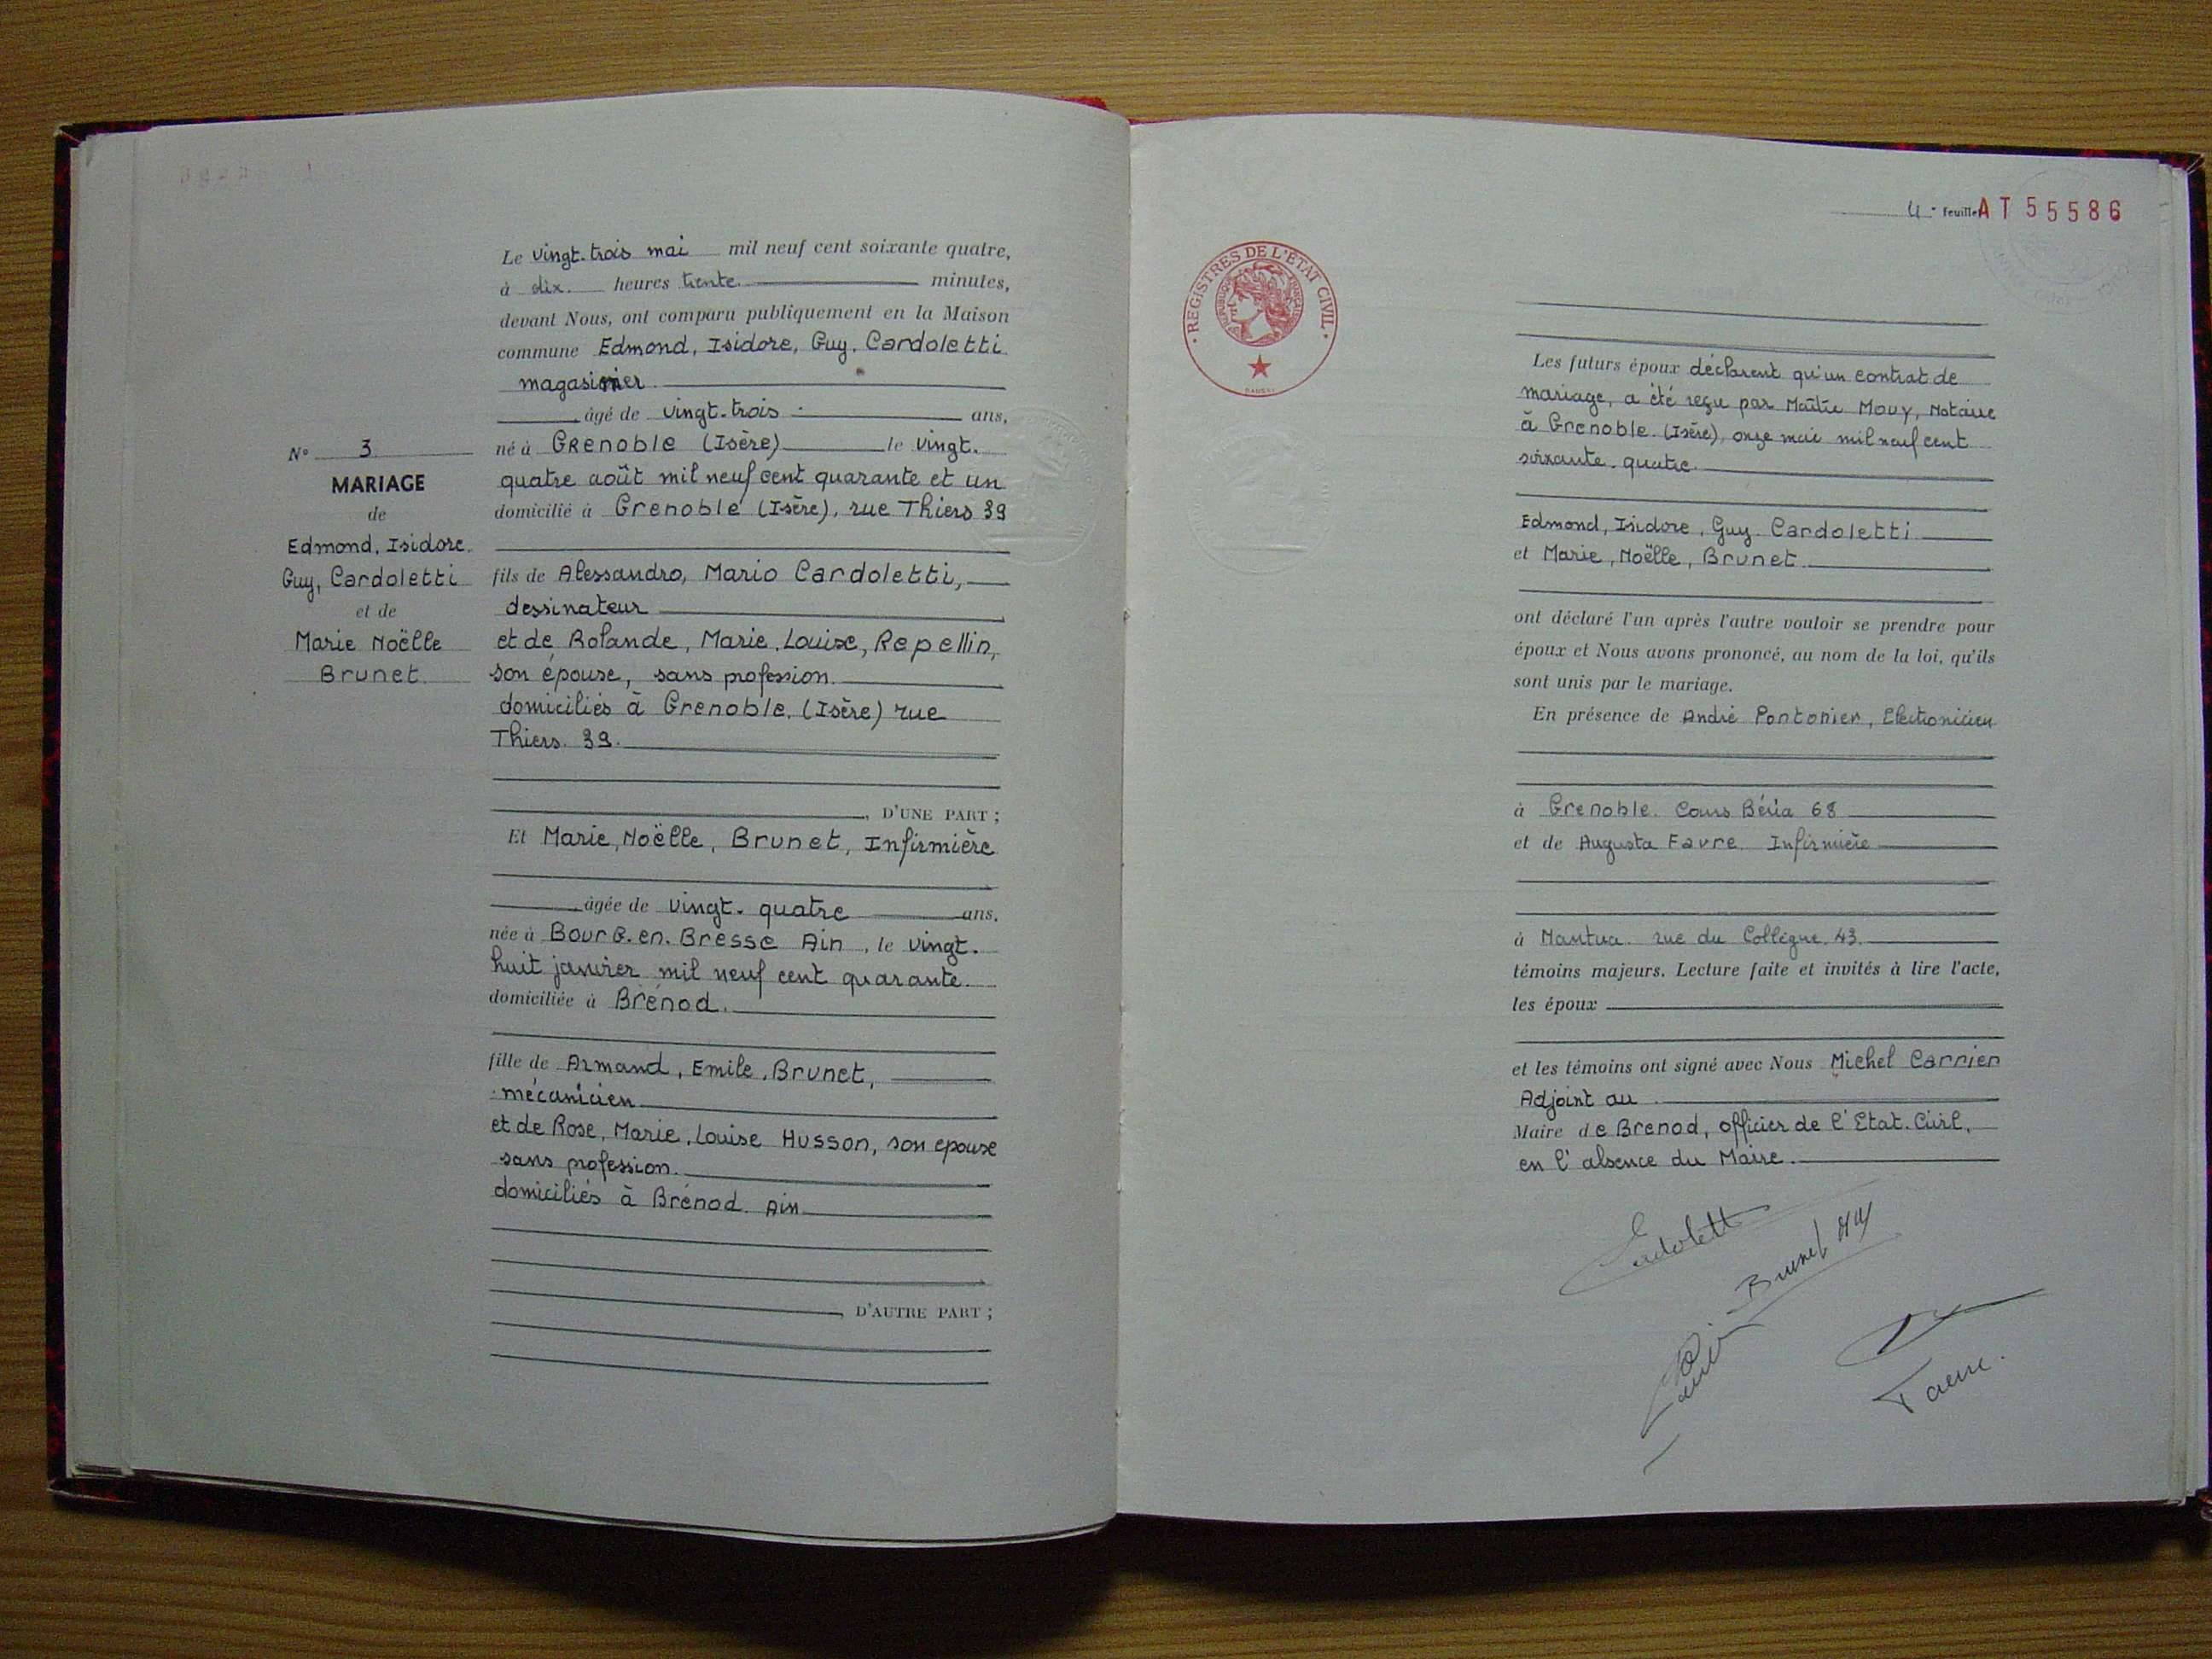 Le vingt-trois mai mil neuf cent soixante quatre,
à dix heures trente minutes,
devant Nous, ont comparu publiquement en la Maison
commune Edmond, Isidore, Guy, Cardoletti
magasinier
âgé de vingt-trois ans,
né à Grenoble (Isère) le vingt-
quatre août mil neuf cent quarante et un
domicilié à Grenoble (Isère), rue Thiers 39
N° 3
MARIAGE
de
Edmond, Isidore
Guy, Cardoletti
et de
Marie Noëlle
Brunet
fils de Alessandro, Mario Cardoletti,
dessinateur
et de Rolande, Marie, Louise, Repellin,
son épouse, sans profession.
domiciliés à Grenoble. (Isère) rue
Thiers. 39.
D'UNE PART ;
Et Marie, Noëlle, Brunet, Infirmière
âgée de vingt-quatre ans,
née à Bourg-en-Bresse Ain, le vingt-
huit janvier mil neuf cent quarante.
domiciliée à Brénod.
fille de Armand, Emile, Brunet,
mécanicien
et de Rose, Marie, Louise Husson, son epouse
sans profession.
domiciliés à Brénod. Ain
D'AUTRE PART ;
4e feuille AT 55586
REGISTRES DE L'ÉTAT CIVIL
RÉPUBLIQUE FRANÇAISE
Les futurs époux déclarent qu'un contrat de
mariage, a été reçu par Maître Mouy, Notaire
à Grenoble (Isère), onze mai mil neuf cent
soixante-quatre.
Edmond, Isidore, Guy Cardoletti
et Marie, Noëlle, Brunet.
ont déclaré l'un après l'autre vouloir se prendre pour
époux et Nous avons prononcé, au nom de la loi, qu'ils
sont unis par le mariage.
En présence de André Pontonier, Electronicien
à Grenoble. Cours Béria 68
et de Augusta Favre Infirmière
à Nantua. rue du Collègue. 43.
témoins majeurs. Lecture faite et invités à lire l'acte,
les époux
et les témoins ont signé avec Nous Michel Carrier
Adjoint au
Maire de Brenod, officier de l'Etat-Civil,
en l'absence du Maire.
Cardoletti
Brunet
Favre.